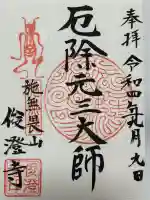 奉拝 令和四年九月九日
厄除元三大師
施無畏山
澄寺